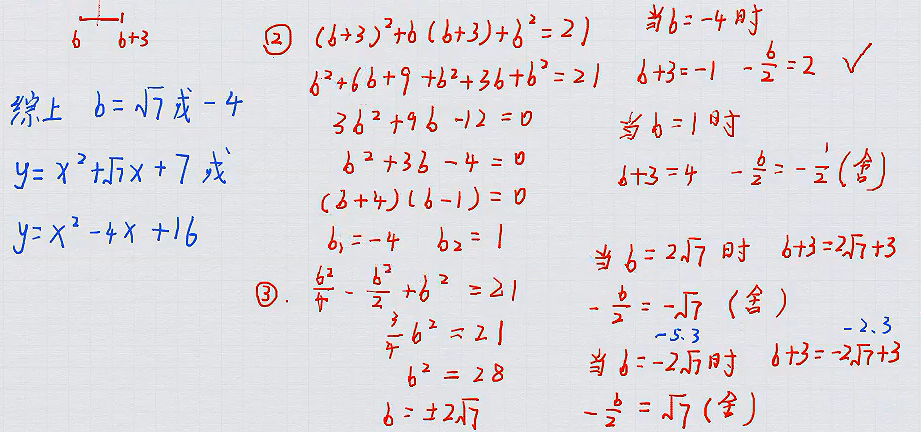 b b+3
综上 b=√7或-4
y=x²+√7x+7或
y=x²-4x+16
② (b+3)²+b(b+3)+b²=21
b²+6b+9+b²+3b+b²=21
3b²+9b-12=0
b²+3b-4=0
(b+4)(b-1)=0
b₁=-4 b₂=1
③. b²/4-b²/2+b²=21
3/4b²=21
b²=28
b=±2√7
当b=-4时
b+3=-1 -b/2=2 ✓
当b=1时
b+3=4 -b/2=-1/2(舍)
当b=2√7时 b+3=2√7+3
-b/2=-√7(舍)
-5.3 -2.3
当b=-2√7时 b+3=-2√7+3
-b/2=√7(舍)